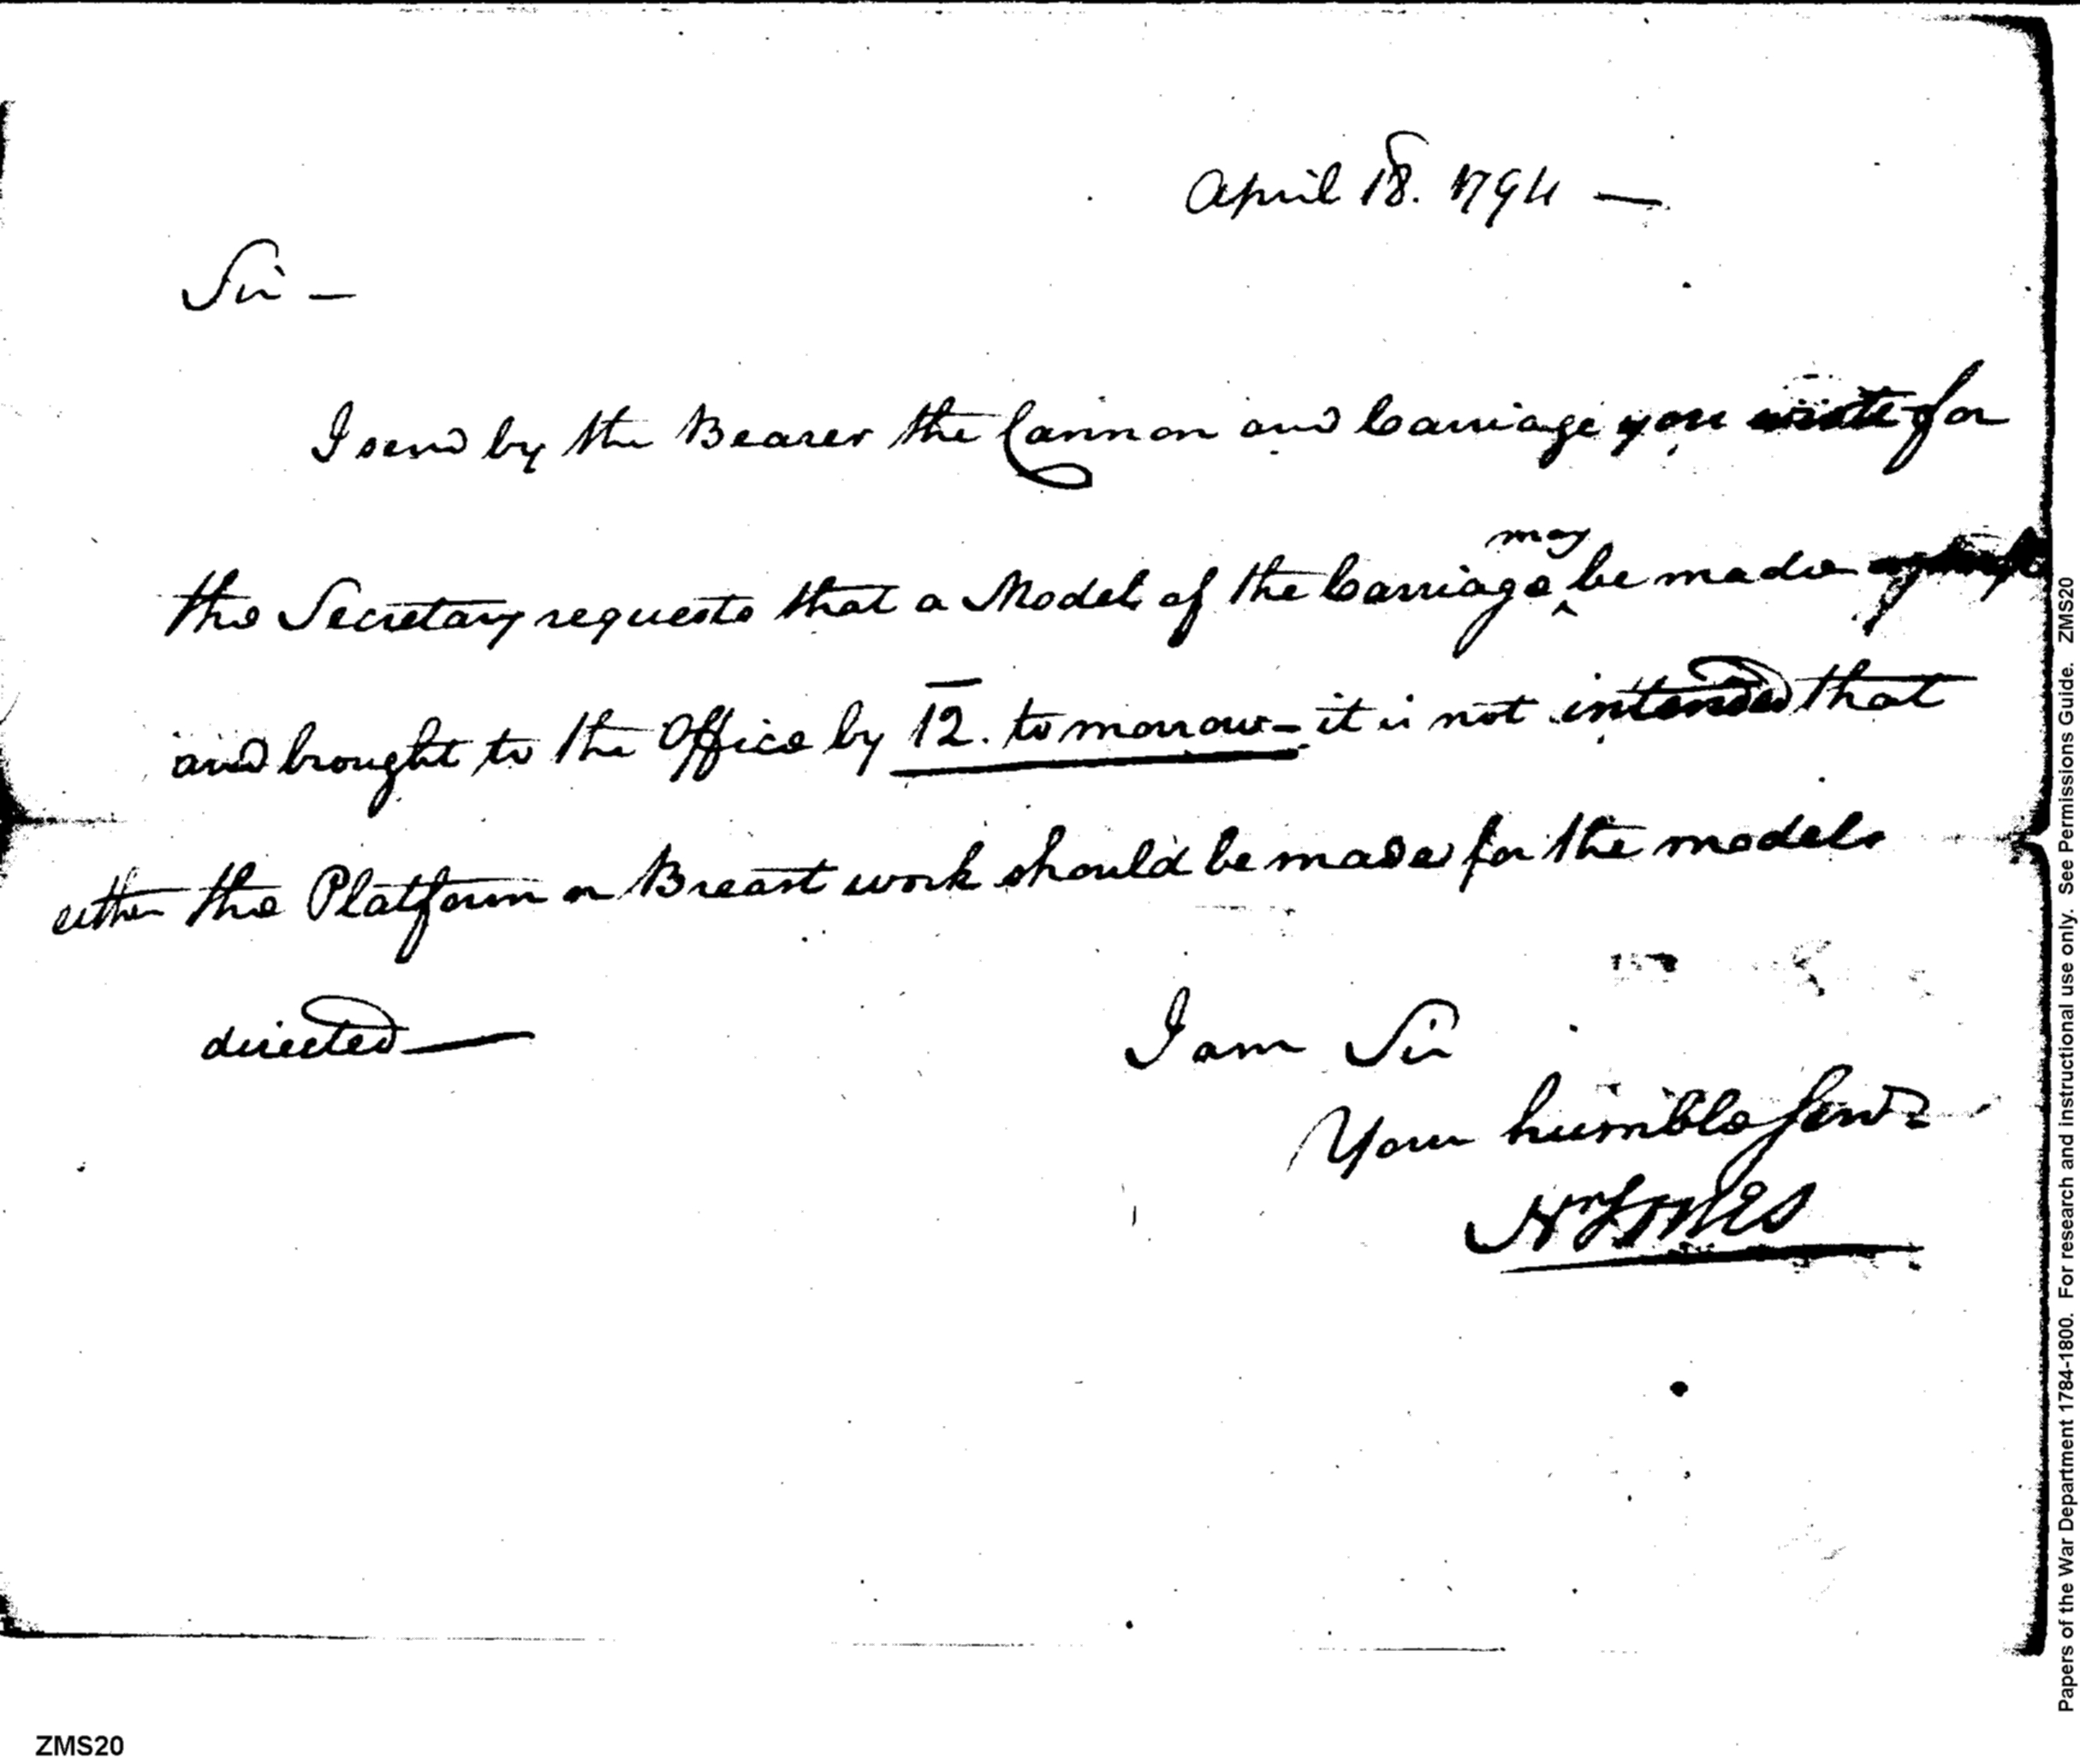 April 18. 1794 —
Sir —
I send by the Bearer the Cannon and Carriage you wrote for
may
the Secretary requests that a Model of the Carriage ^ be made
and brought to the Office by 12. tomorrow - it is not intended that
either the Platform or Breast work should be made for the models
directed —
I am Sir
Your humble Servt
ZMS20
Papers of the War Department 1784-1800. For research and instructional use only. See Permissions Guide. ZMS20